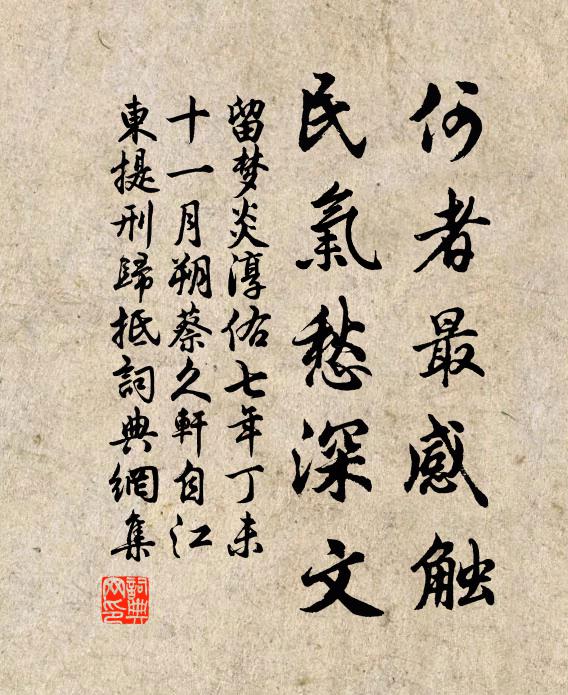 何者最感触
民氣愁深文
留梦炎淳佑七年丁未
十一月朔蔡久軒自江
東提刑歸抵詞典網集
詞典
网印